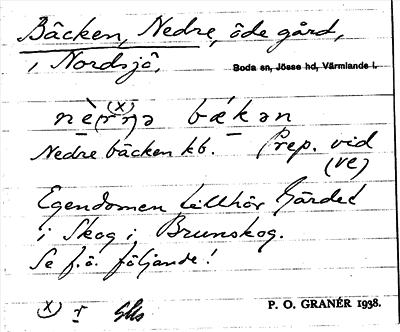 Bäcken, Nedre, öde gård,
i Nordsjö,
Boda sn, Jösse hd, Värmlands l.
(x)
nè(r r)ə bǽkən
Nedre bäcken kb. Prep. vid
(ve)
Egendomen tillhör Gärdet
i Skog i Brunskog.
Se f.ö. följande!
(x) r
P. O. GRANÉR 1938.